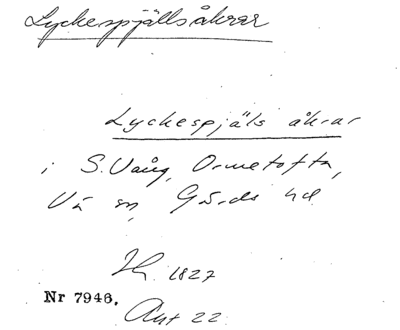 Lyckespjällsåkrar
Lyckespjäls åkrar
i S. Vång, Ormetofta,
Vä sn, Gärds hd
1827
Nr 7946.
Akt 22